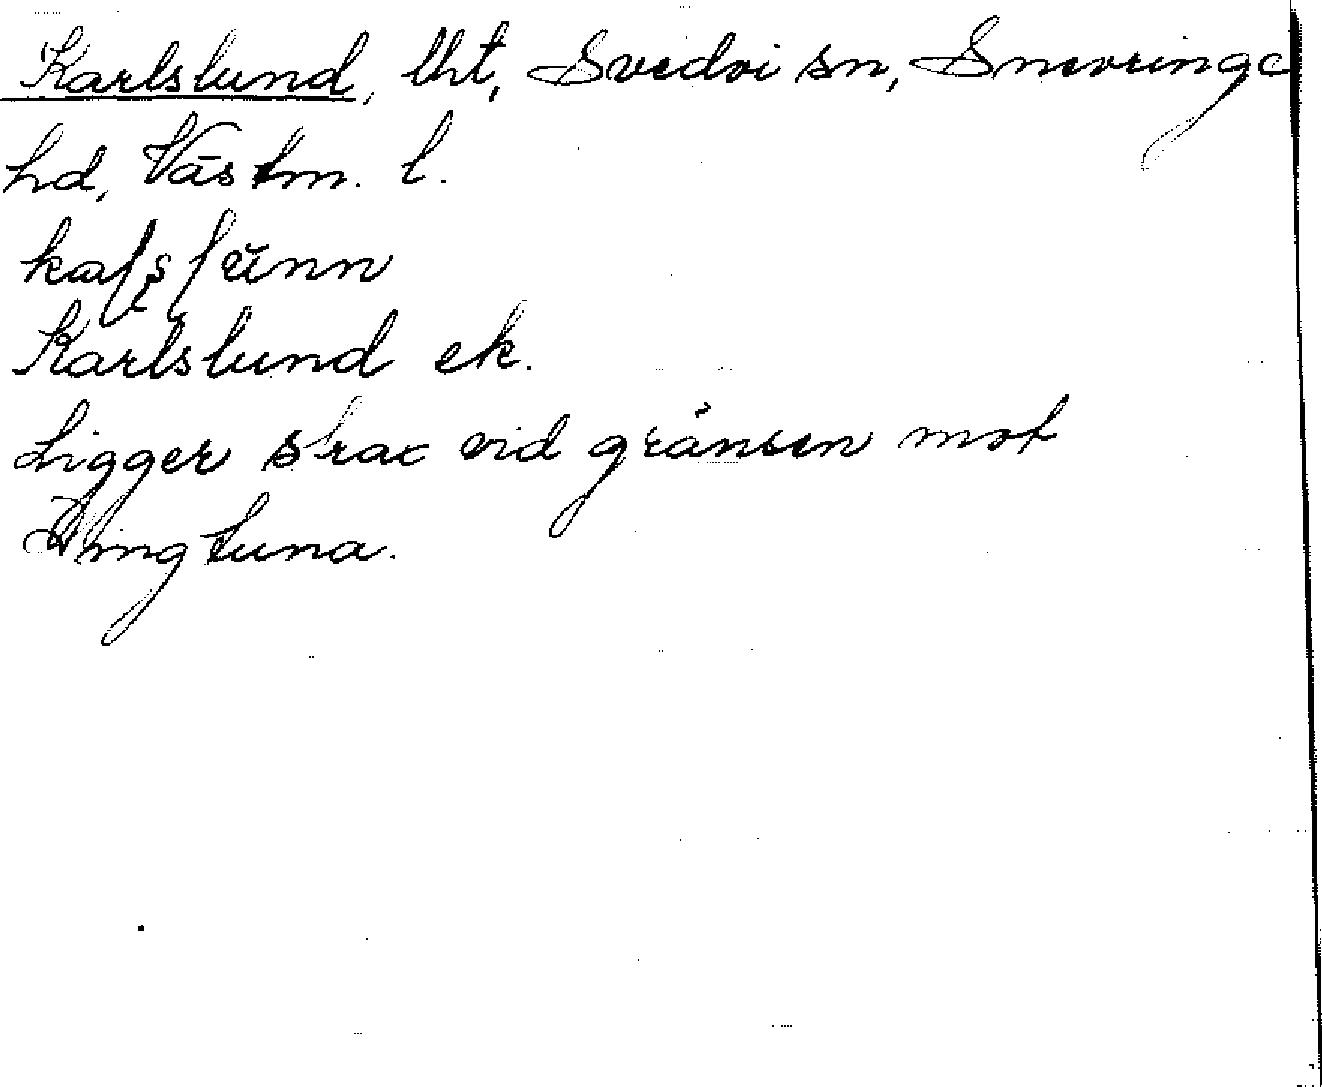 Karlslund, lht, Svedvi sn, Snevringe
hd, Västm. l.
Karlslund ek.
Ligger strax vid gränsen mot
Dingtuna.